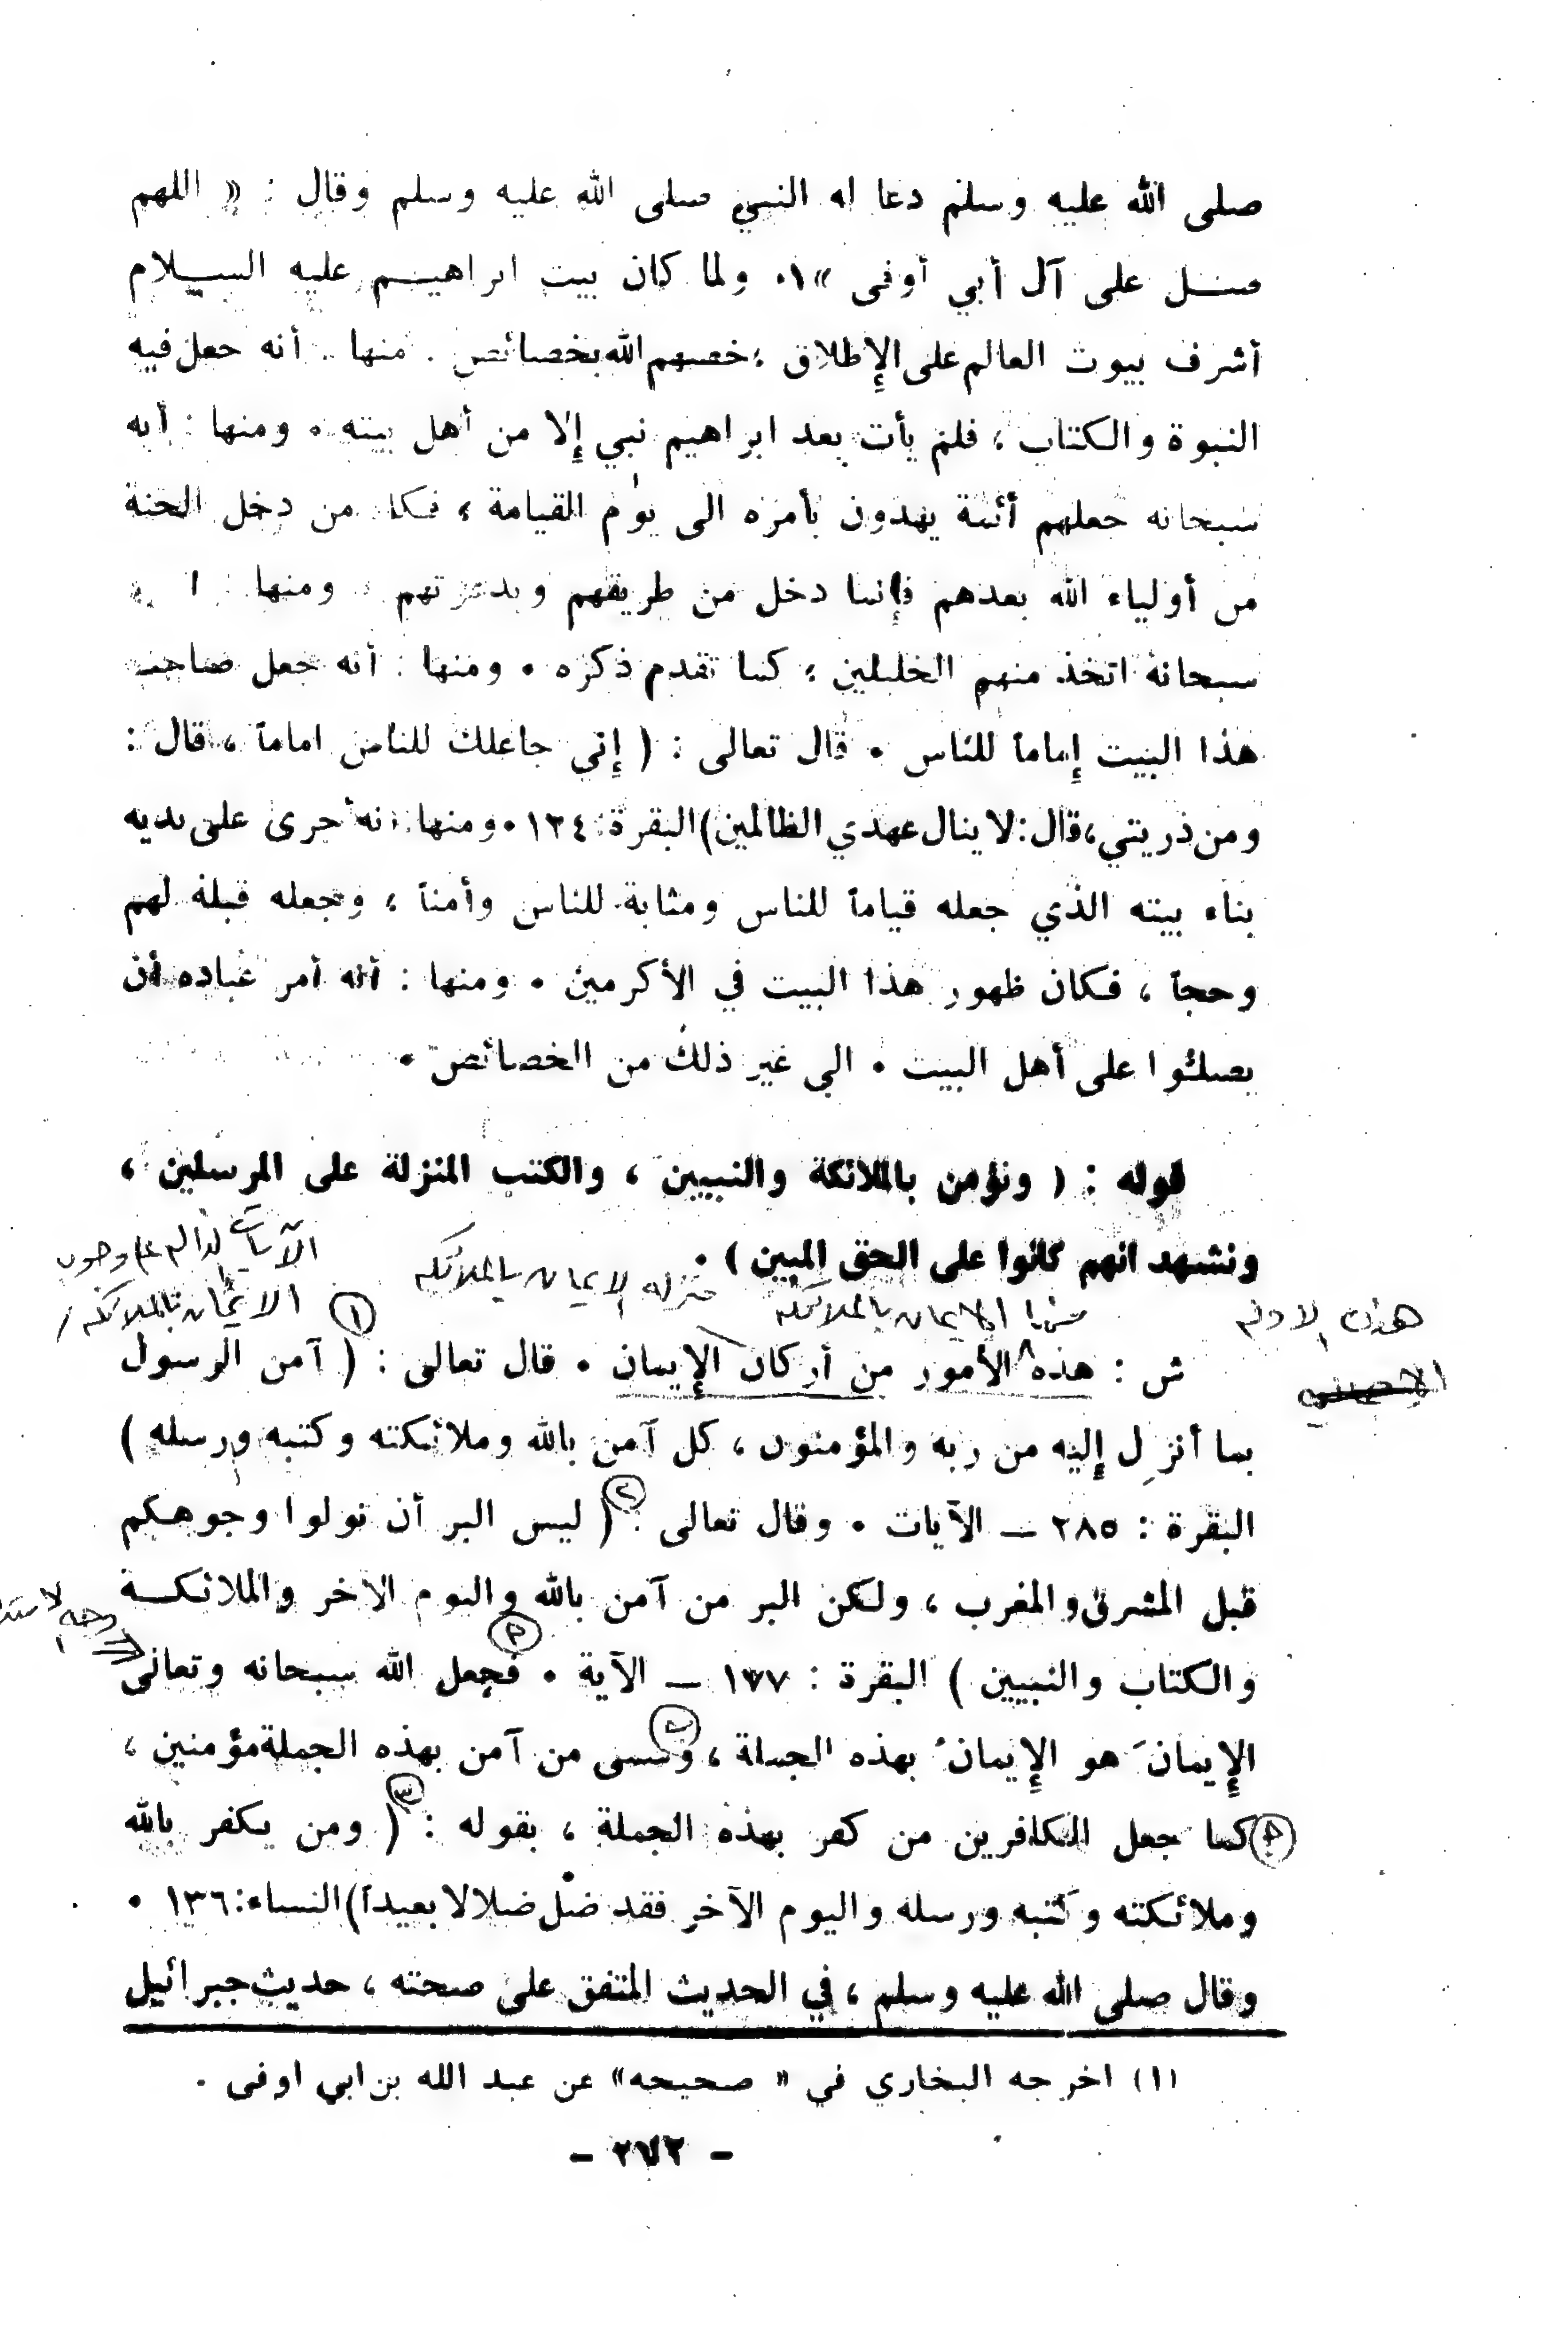 صلى الله عليه وسلم دعا له النبي صلى الله عليه وسلم وقال : « اللهم
صل على آل أبي أوفى »١٠ ولما كان بيت ابراهيم عليه السلام
أشرف بيوت العالم على الإطلاق ، خصهم الله بخصائص . منها : أنه جعل فيه
النبوة والكتاب ، فلم يأت بعد ابراهيم نبي إلا من أهل بيته ٠ ومنها : أنه
سبحانه جعلهم أئمة يهدون بأمره الى يوم القيامة ، فكل من دخل الجنة
من أولياء الله بعدهم فإنما دخل من طريقهم وبدعوتهم . ومنها :
سبحانه اتخذ منهم الخليلين ، كما تقدم ذكره ٠ ومنها : أنه جعل صاحب
هذا البيت إماماً للناس ٠ قال تعالى : ( إني جاعلك للناس اماماً ، قال :
ومن ذريتي ، قال : لا ينال عهدي الظالمين ) البقرة : ١٢٤ ٠ ومنها : أنه أجرى على يديه
بناء بيته الذي جعله قياماً للناس ومثابة للناس وأمناً ، وجعله قبلة لهم
وحجاً ، فكان ظهور هذا البيت في الأكرمين ٠ ومنها : أنه أمر عباده أن
يصلوا على أهل البيت ٠ الى غير ذلك من الخصائص ٠
قوله : ( ونؤمن بالملائكة والنبيين ، والكتب المنزلة على المرسلين ،
ونشهد انهم كانوا على الحق المبين ) ٠
منزلة الإيمان بالملائكة
الآيات الدالة على وجوب
الإيمان بالملائكة
١
منها الإيمان بالملائكة
هذه الأدلة
ش : هذه الأمور من أركان الإيمان ٠ قال تعالى : ( آمن الرسول
بما أنزل إليه من ربه والمؤمنون ، كل آمن بالله وملائكته وكتبه ورسله )
البقرة : ٢٨٥ ــ الآيات ٠ وقال تعالى : ( ليس البر أن تولوا وجوهكم
٢
قبل المشرق والمغرب ، ولكن البر من آمن بالله واليوم الآخر والملائكة
والكتاب والنبيين ) البقرة : ١٧٧ ــ الآية ٠ فجعل الله سبحانه وتعالى
الإيمانَ هو الإيمانُ بهذه الجملة ، وسمى من آمن بهذه الجملة مؤمنين ،
كما جعل الكافرين من كفر بهذه الجملة ، بقوله : ( ومن يكفر بالله
٣
وملائكته وكتبه ورسله واليوم الآخر فقد ضل ضلالا بعيداً ) النساء : ١٣٦ ٠
وقال صلى الله عليه وسلم ، في الحديث المتفق على صحته ، حديث جبرائيل
(١) اخرجه البخاري في « صحيحه » عن عبد الله بن ابي اوفى .
- ٢٧٢ -